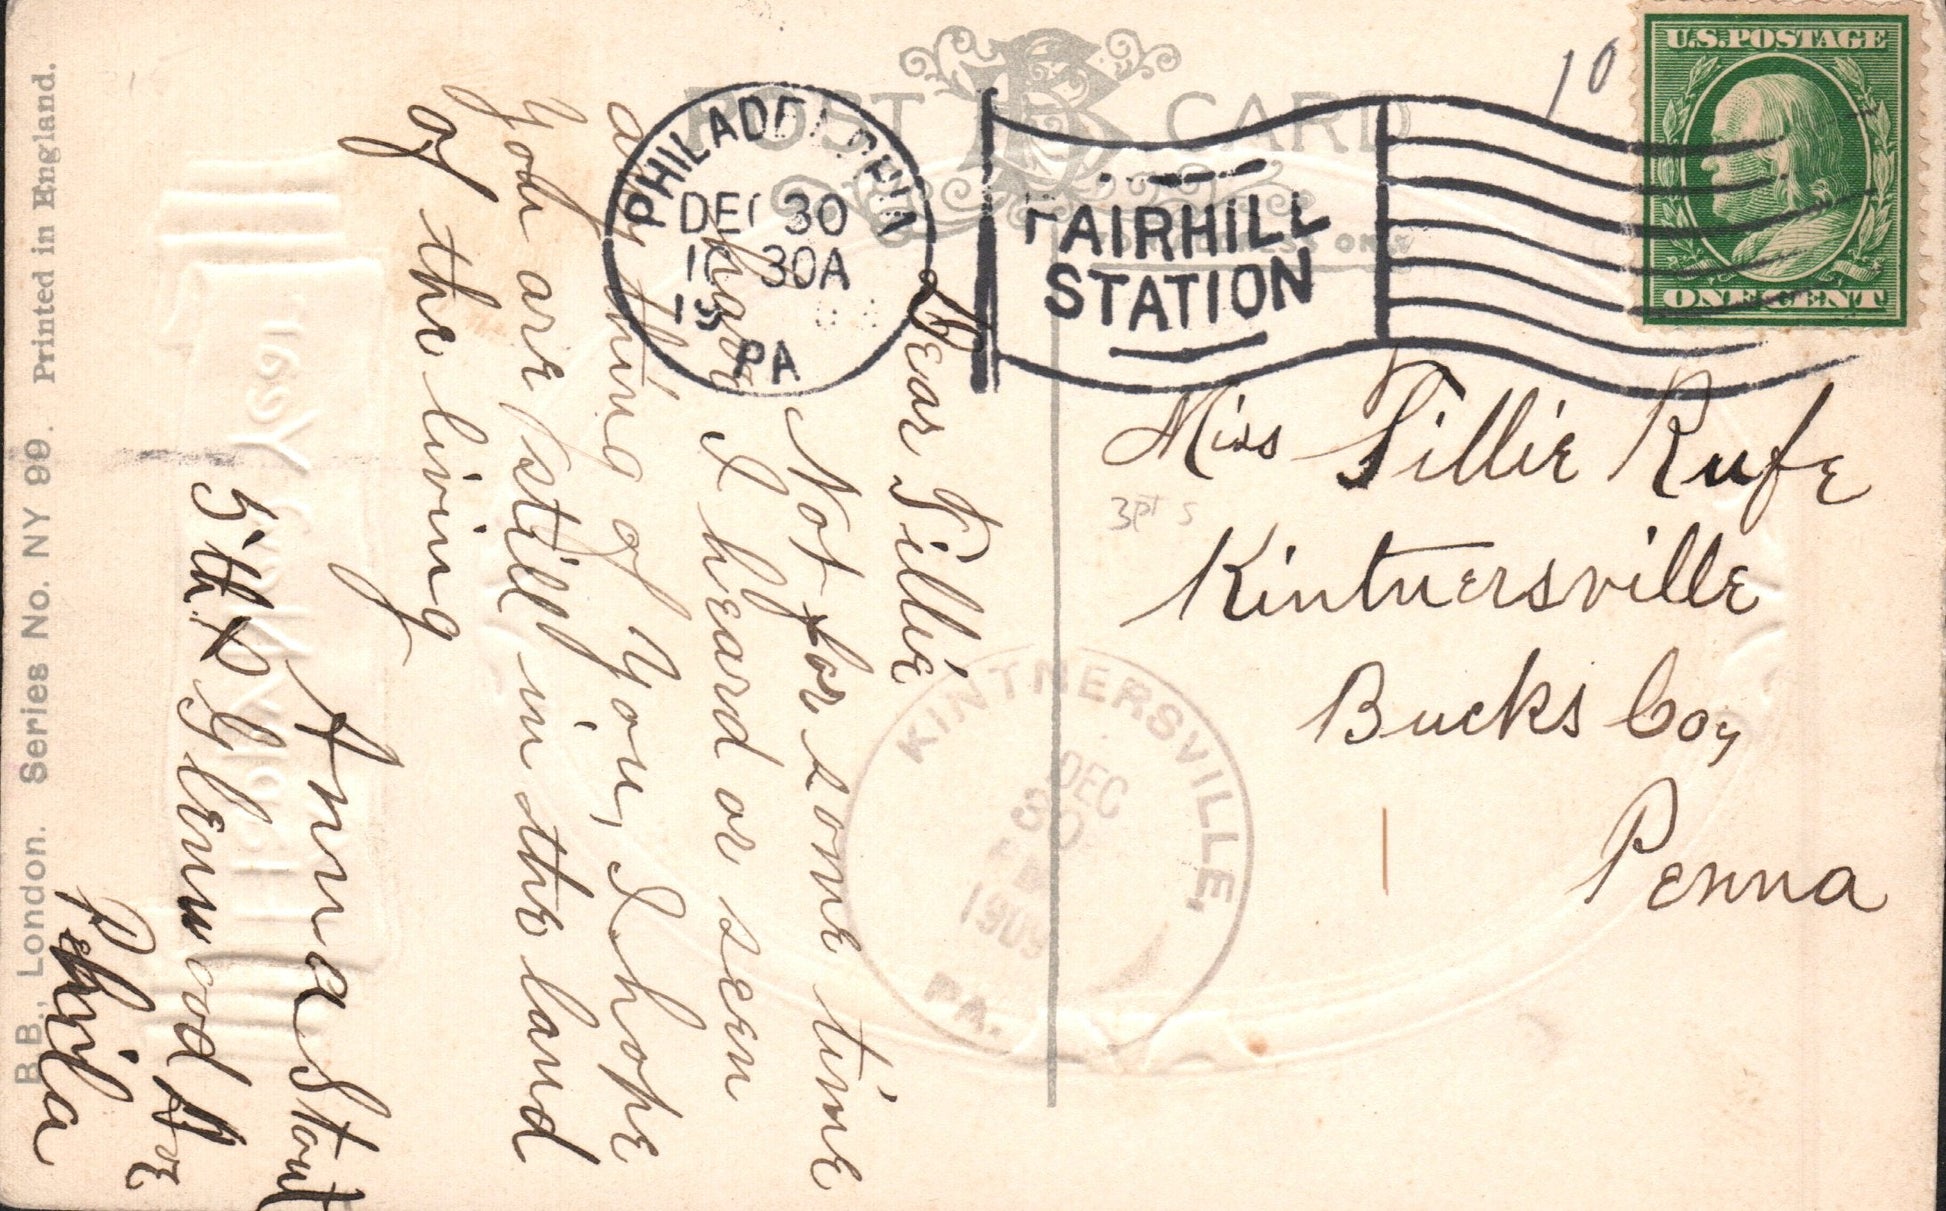 POST CARD
U.S. POSTAGE
ONE CENT
10
PHILADELPHIA
DEC 30
10 30A
19
PA
FAIRHILL
STATION
Miss Tillie Rufe
Kintnersville
Bucks Co,
Penna
3pts
KINTNERSVILLE,
DEC
30
1909
PA.
Dear Tillie
Not for some time
have I heard or seen
any thing of you, I hope
you are still in the land
of the living
Anna Stout
5th & Glenwood Ave
Phila
B.B., London. Series No. NY 99. Printed in England.